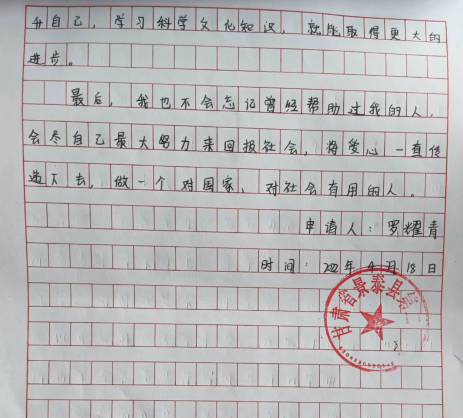 自己，学习科学文化知识，就能取得更大的
进步。
最后，我也不会忘记曾经帮助过我的人，
会尽自己最大努力来回报社会，将爱心一直传
递下去，做一个对国家、对社会有用的人。
申请人：罗耀青
时间：2022年4月18日
甘肃省景泰县